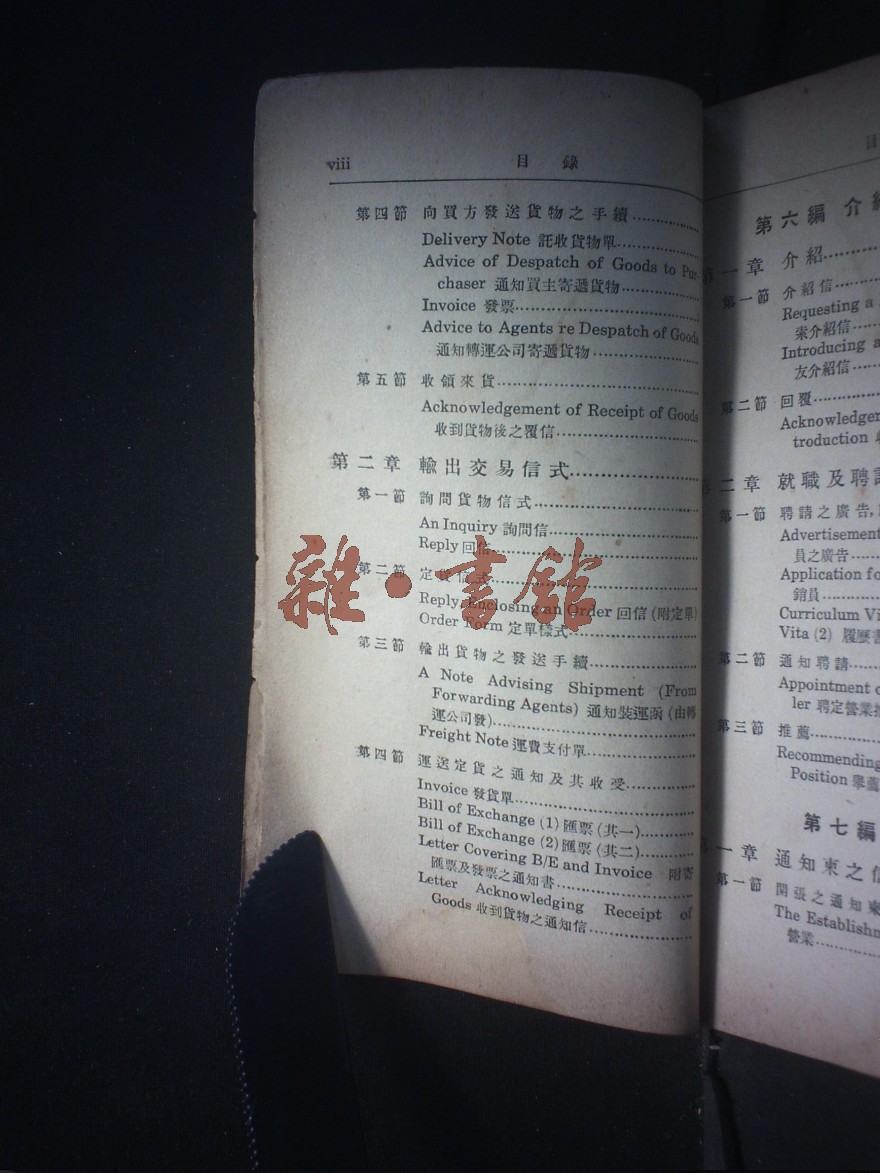 viii 目 錄
第四節 向買方發送貨物之手續
Delivery Note 託收貨物單
Advice of Despatch of Goods to Pur-
chaser 通知買主寄遞貨物
Invoice 發票
Advice to Agents re Despatch of Goods
通知轉運公司寄遞貨物
第五節 收領來貨
Acknowledgement of Receipt of Goods
收到貨物後之覆信
第二章 輸出交易信式
第一節 詢問貨物信式
An Inquiry 詢問信
Reply 回信
第二節 定貨信式
Reply, Enclosing an Order 回信 (附定單)
Order Form 定單樣式
第三節 輸出貨物之發送手續
A Note Advising Shipment (From
Forwarding Agents) 通知裝運函 (由轉
運公司發)
Freight Note 運費支付單
第四節 運送定貨之通知及其收受
Invoice 發貨單
Bill of Exchange (1) 匯票 (其一)
Bill of Exchange (2) 匯票 (其二)
Letter Covering B/E and Invoice 附寄
匯票及發票之通知書
Letter Acknowledging Receipt of
Goods 收到貨物之通知信
目
第六編 介紹
第一章 介紹
第一節 介紹信
Requesting a
索介紹信
Introducing a
友介紹信
第二節 回覆
Acknowledgem
troduction
第二章 就職及聘請
第一節 聘請之廣告,
Advertisement
員之廣告
Application fo
銷員
Curriculum Vi
Vita (2) 履歷書
第二節 通知聘請
Appointment o
ler 聘定營業推
第三節 推薦
Recommending
Position 舉薦
第七編
第一章 通知柬之信
第一節 開張之通知柬
The Establishm
營業
雜·書館